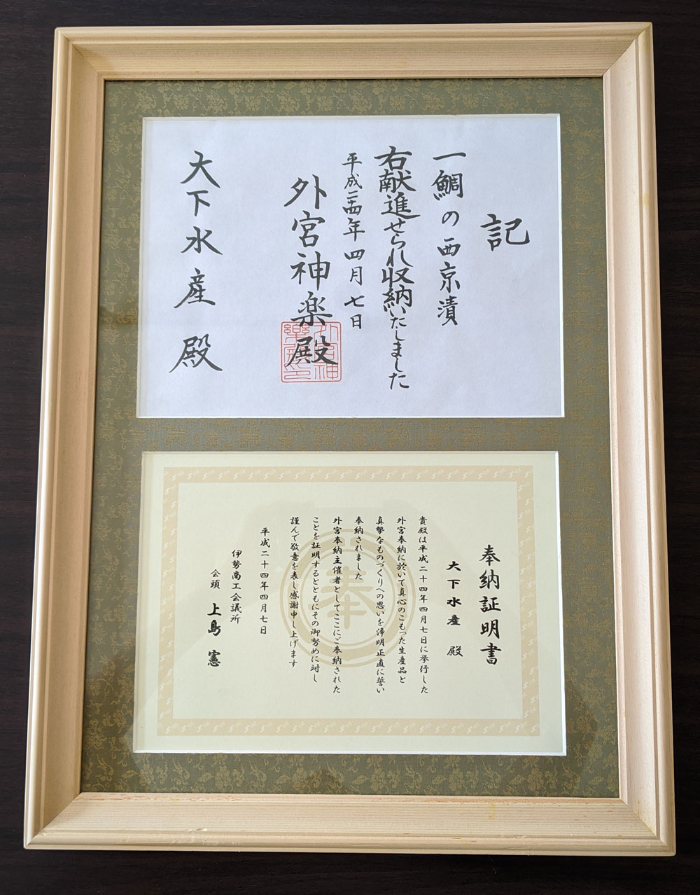 記
一鯛の西京漬
右献進せられ収納いたしました
平成二四年四月七日
外宮神楽殿
大下水産殿
奉納証明書
大下水産 殿
貴殿は平成二十四年四月七日に挙行した
外宮奉納に於いて真心のこもった生産品と
真摯なものづくりへの思いを諦明正直に誓い
奉納されました
外宮奉納主催者としてここにご奉納された
ことを証明するとともにその御努めに対し
謹んで敬意を表し感謝申し上げます
平成二十四年四月七日
伊勢商工会議所
会頭 上島 憲
奉